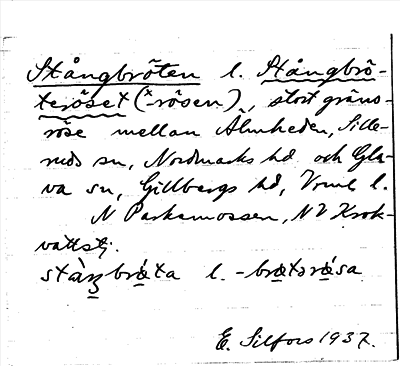 Stångbröten l. Stångbrö-
teröset (x-rösen), stort gräns-
röse mellan Älmheden, Sille-
ruds sn, Nordmarks hd och Gla-
va sn, Gillbergs hd, Vrml l.
N Parkamossen, NV Krok-
vattstj.
l.
E. Silfors 1937.